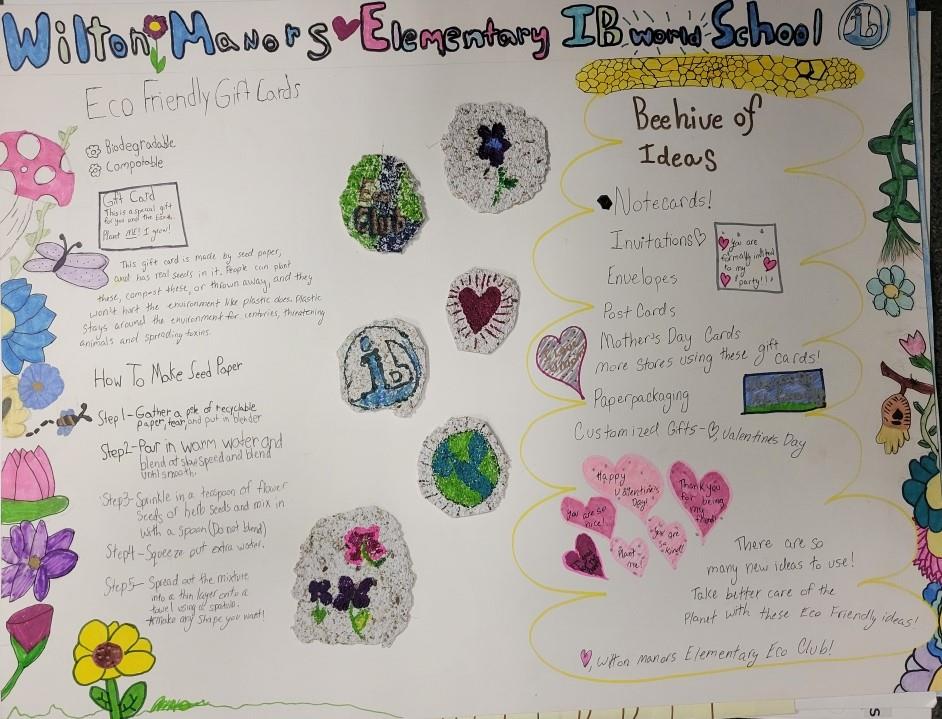 Wilton Manors Elementary IB World School ib
Eco Friendly Gift Cards
Biodegradable
Compotable
Gift Card
This is a special gift
for you and the Earth.
Plant ME! I grow!
This gift card is made by seed paper,
and has real seeds in it. People can plant
these, compost these, or thrown away, and they
won't hurt the environment like plastic does. Plastic
stays around the environment for centuries, threatening
animals and spreading toxins.
How To Make Seed Paper
Step 1-Gather a pile of recyclable
paper, tear, and put in blender
Step2-Pour in warm water and
blend at slow speed and blend
until smooth.
Step3-Sprinkle in a teaspoon of flower
seeds or herb seeds and mix in
with a spoon (Do not blend)
Step4-Squeeze out extra water.
Step5- Spread out the mixture
into a thin layer onto a
towel using a spatula.
*make any shape you want!
Club
ib
Beehive of
Ideas
Notecards!
Invitations♡
You are
formally invited
to my
party!!!
Envelopes
Post Cards
Mother's Day Cards
more stores using these gift cards!
Paperpackaging
Customized Gifts-♡, Valentines Day
Happy
Valentine's
Day!
Thank you
for being
my
friend.
You are so
nice!
You are
so
kind!
Plant
me!
There are so
many new ideas to use!
Take better care of the
Planet with these Eco Friendly ideas!
♡, Wilton manors Elementary Eco Club!